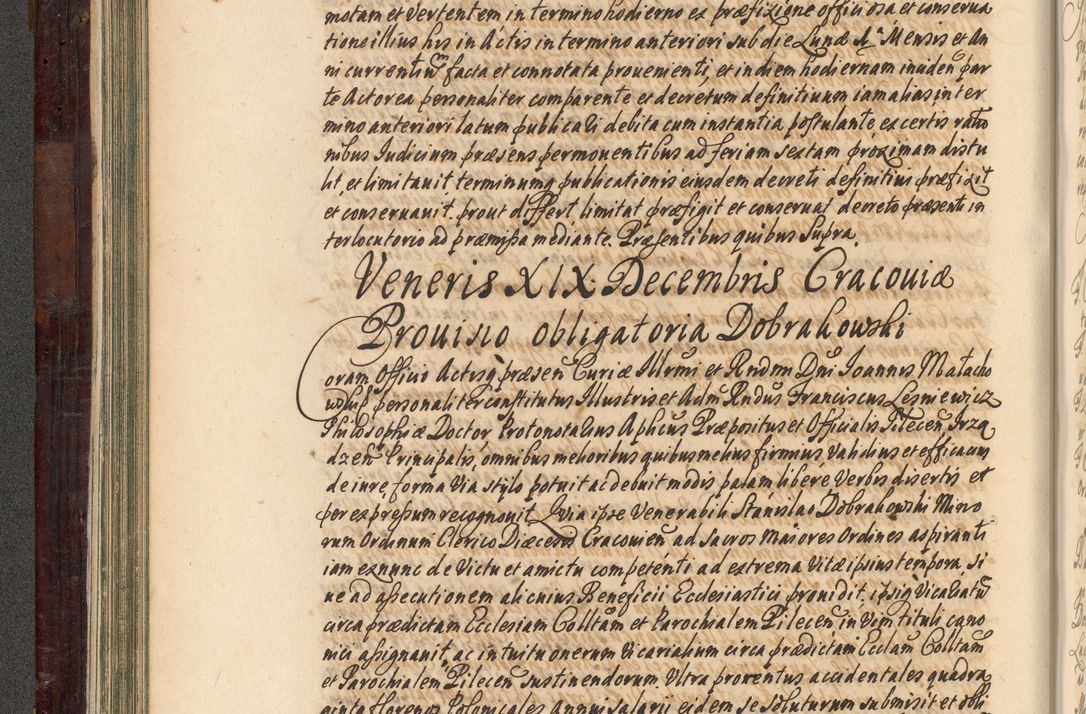 motam et Vertentem in termino hodierno ex præfixione officiosa et conserva
tione illius his in Actis in termino anteriori sub die Lunæ 1ª Mensis et An
ni currentiũ facta et connotata provenienti, et in diem hodiernam inciden par
te Actorea personaliter comparente et decretum definitivum iam alias in ter
mino anteriori latum publicari debita cum instantia postulante ex certis ratio
nibus Iudicium præsens permoventibus ad feriam sextam proximam distu
lit, et limitavit terminumq publicationis eiusdem decreti definitivi præfixit
et conservavit. prout differt limitat præfigit et conservat decreto præsenti in
terlocutorio ad præmissa mediante. Præsentibus quibus Supra.
Veneris XIX. Decembris Cracoviæ
Provisio obligatoria Dobrakowski
Coram Officio Actisq præsen Curiæ Illrmi et Rndmi Dni Ioannis Malacho
wski personaliter constitutus Illustris et Adm Rndus Franciscus Lesniewicz
Philosophiæ Doctor Protonotarius Aplicus Præpositus et Officialis Pilecen Irzą
dzen Principalis, omnibus melioribus quibus melius firmius validius et efficacius
de iure, forma via stylo potuit ac debuit modis palam libere Verbis disertis et
per expressum recognovit Quia ipse Venerabili Stanislao Dobrakowski Mino
rum Ordinum Clerico Diæcesis Cracovien ad Sacros Maiores Ordines aspiranti
iam ex nunc de Victu et amictu competenti ad extrema Vitæ ipsius tempora, si
ve ad assecutionem alicuius Beneficii Ecclesiastici providit, ipsiq Vicariatũ
circa prædictam Ecclesiam Colltam et Parochialem Pilecen in Vim tituli cano
nici assignavit, ac intuitu onerum Vicarialium circa prædictam Ecclam Colltam
et Parochialem Pilecen sustinendorum. Ultra proventus accidentales quadra
ginta florenos Polonicales annui salarii eidem se soluturum submisit et obli